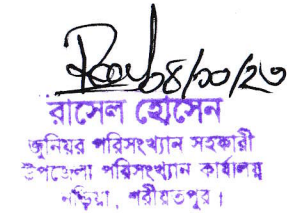 ০৪/১০/২৩
রাসেল হোসেন
জুনিয়র পরিসংখ্যান সহকারী
উপজেলা পরিসংখ্যান কার্যালয়
নড়িয়া, শরীয়তপুর।